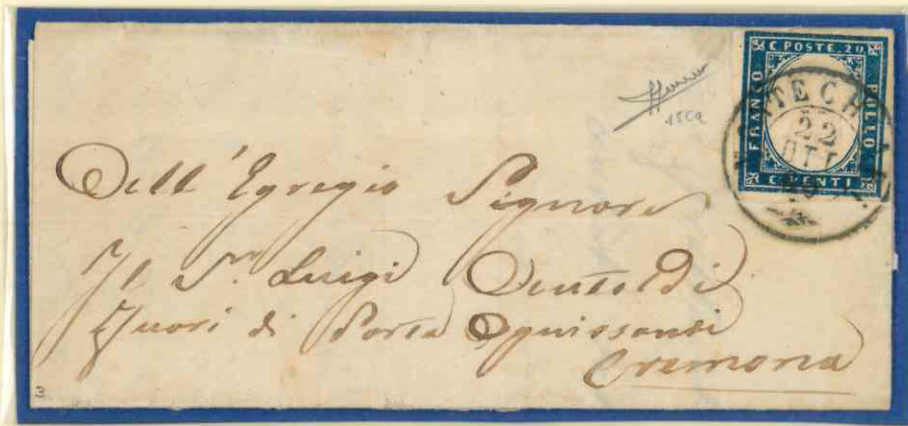 C. POSTE. 20
FRANCO BOLLO
C. VENTI
22
OTT
15Ca
Dell' Egregio Signore
Il Sr. Luigi
Fuori di Porta Ognissanti
Cremona
3